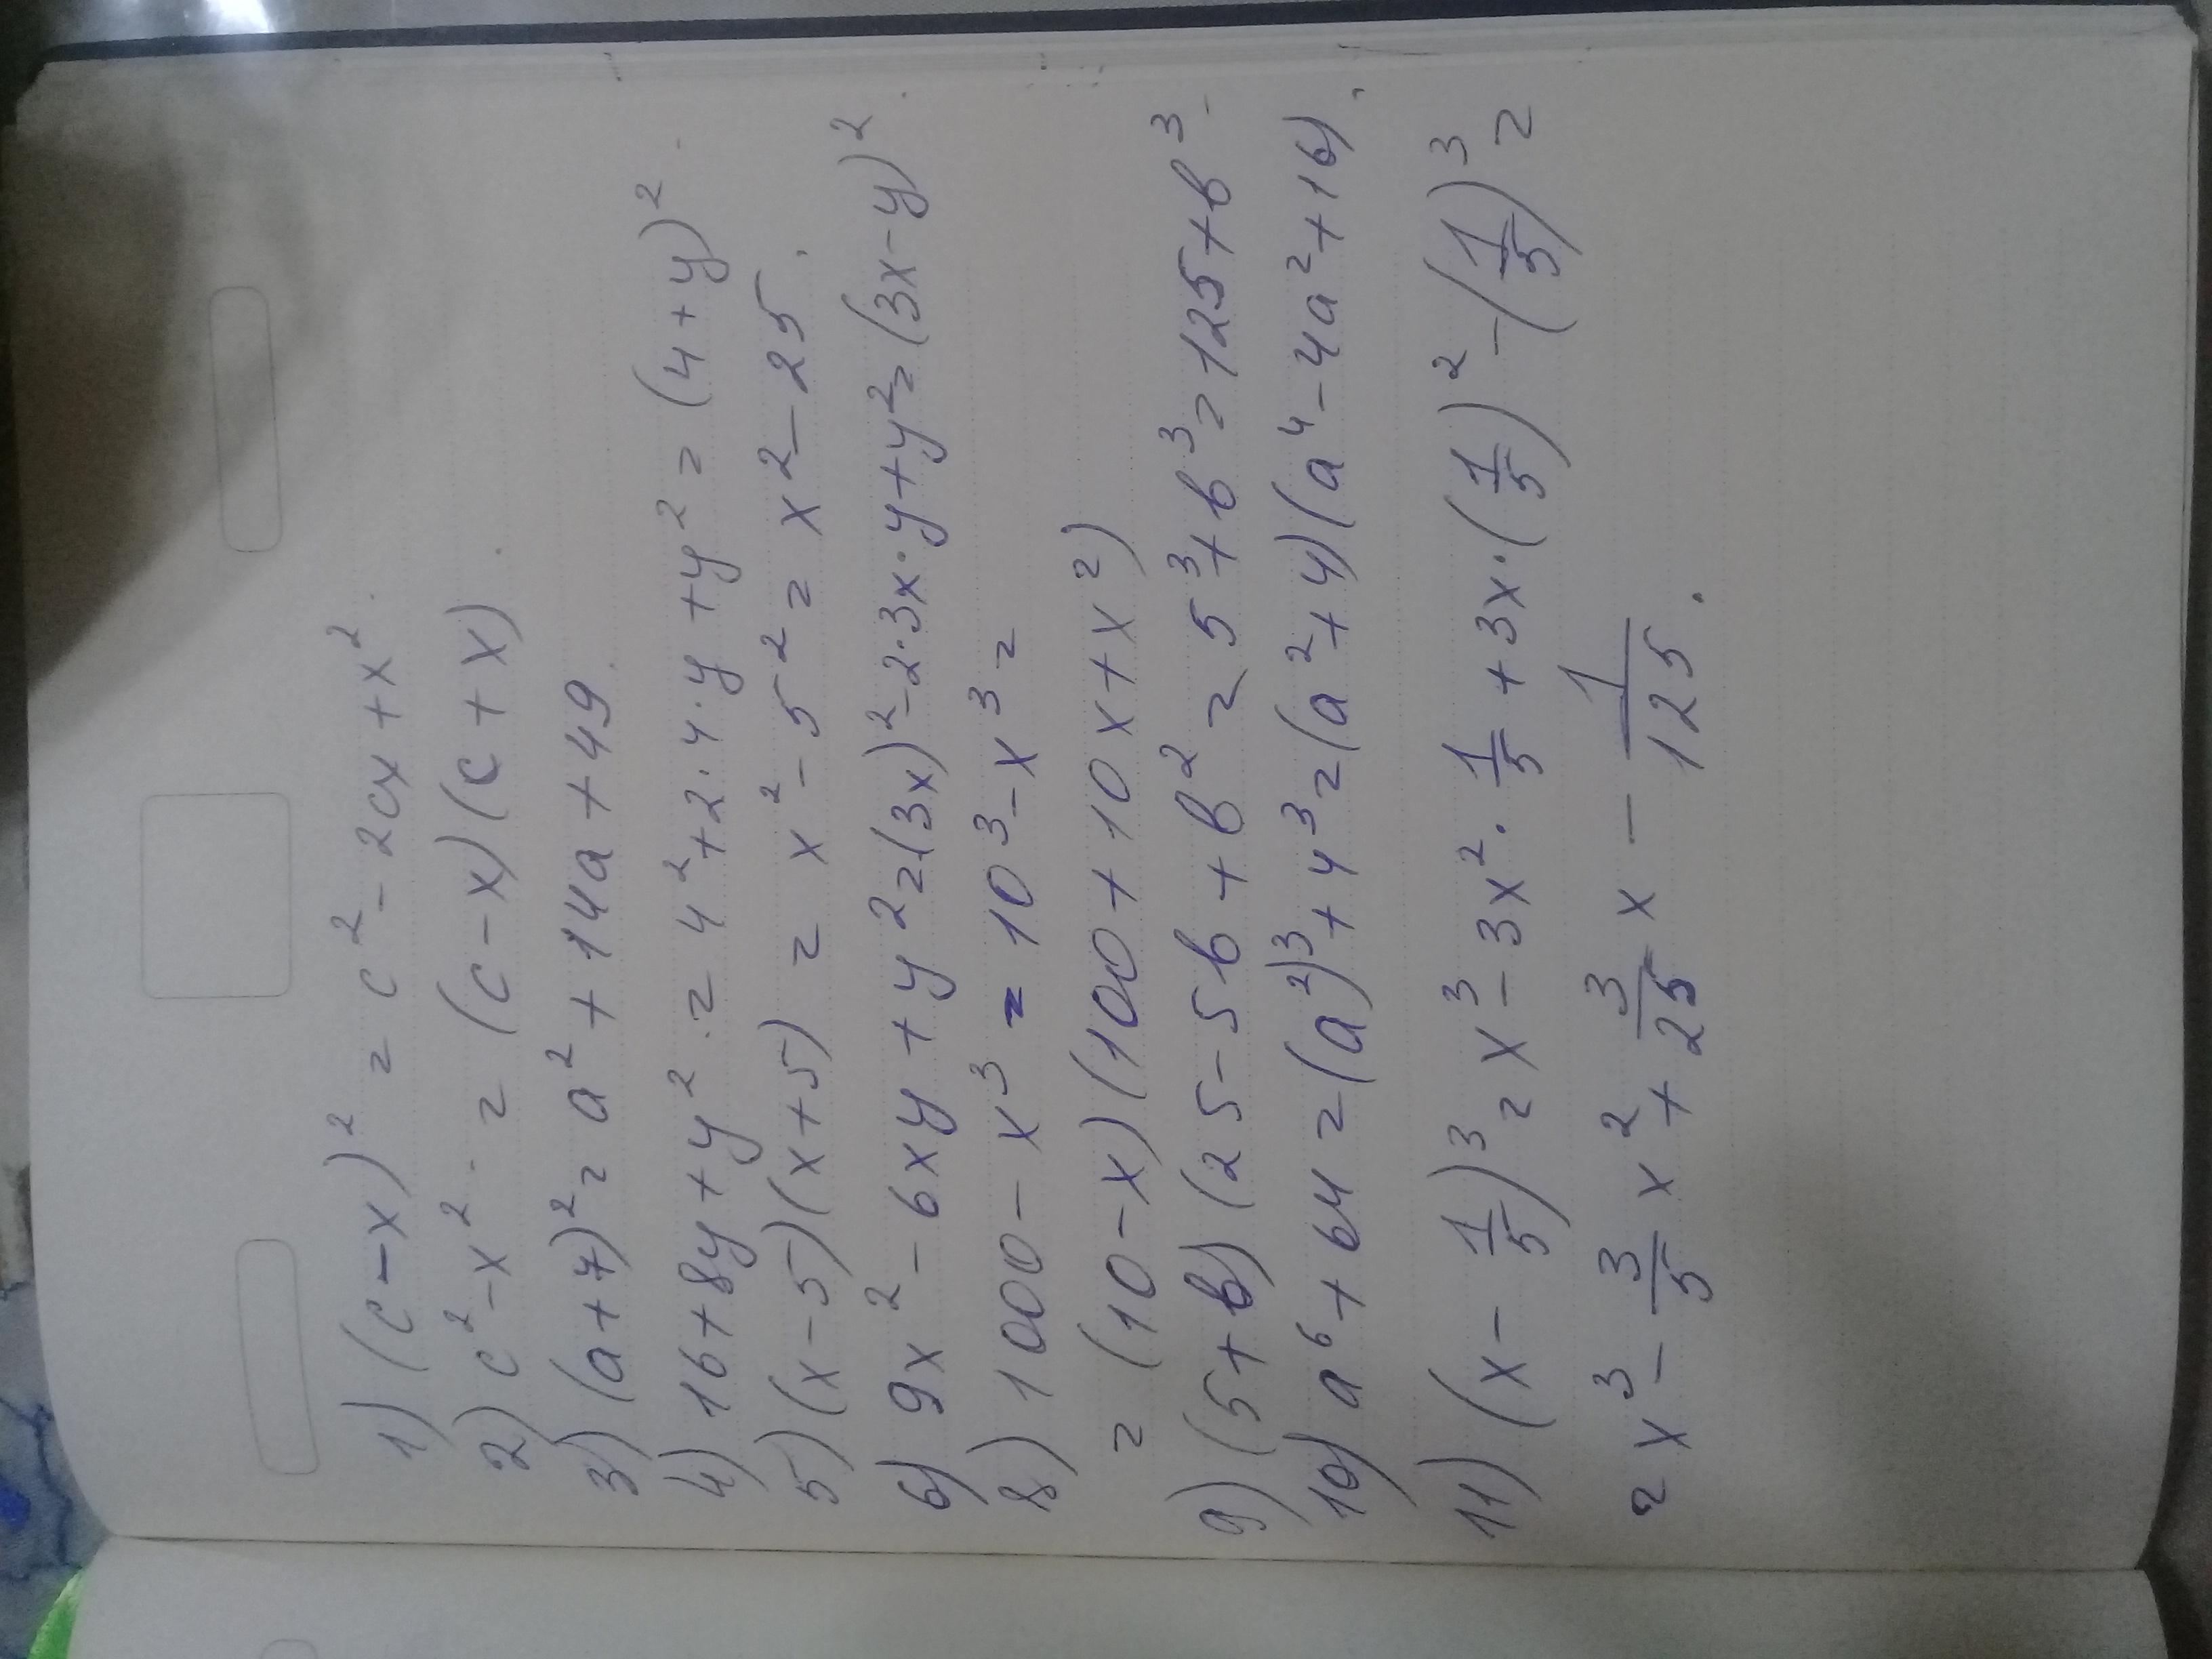 1) (c-x)² = c² - 2cx + x².
2) c² - x² = (c-x)(c+x).
3) (a+7)² = a² + 14a + 49.
4) 16+8y+y² = 4²+2·4·y+y² = (4+y)².
5) (x-5)(x+5) = x²-5² = x²-25.
6) 9x²-6xy+y²=(3x)²-2·3x·y+y²=(3x-y)².
8) 1000-x³ = 10³-x³ =
= (10-x)(100+10x+x²)
9) (5+b)(25-5b+b² = 5³+b³=125+b³.
10) a⁶+64=(a²)³+4³=(a²+4)(a⁴-4a²+16).
11) (x-1/5)³=x³-3x²·1/5+3x·(1/5)²-(1/5)³=
=x³-3/5x²+3/25x-1/125.